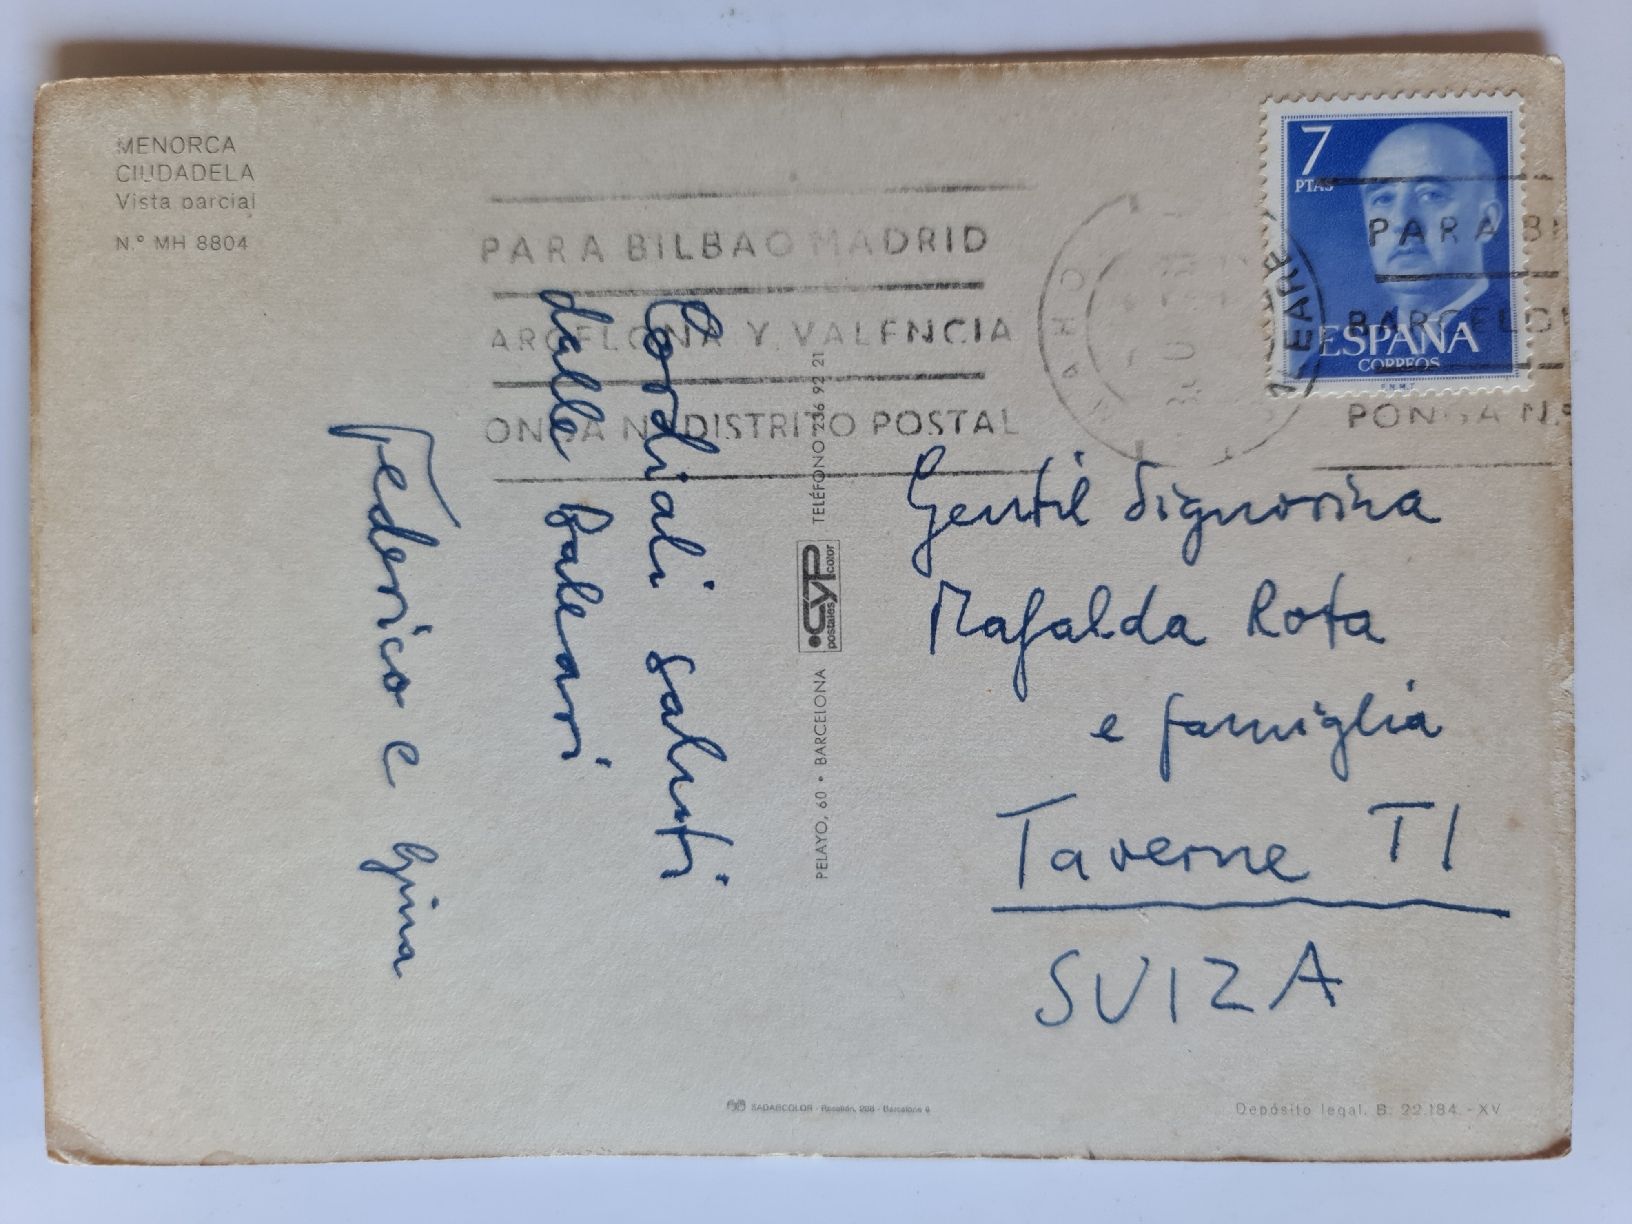 MENORCA
CIUDADELA
Vista parcial
N.º MH 8804
PARA BILBAO MADRID
ARCELONA Y VALENCIA
ONGA N.º DISTRITO POSTAL
7
PTAS
ESPAÑA
CORREOS
F.N.M.T.
PARA BI
BARCELO
PONGA N.º
Cordiali saluti
dalle Baleari
Federico e Gina
PELAYO, 60 • BARCELONA
CYP
postales color
TELÉFONO 236 92 21
Gentil Signorina
Mafalda Rota
e famiglia
Taverne TI
SUIZA
SADAGCOLOR - Rosellón, 298 - Barcelona 9
Depósito legal. B. 22.184.-XV